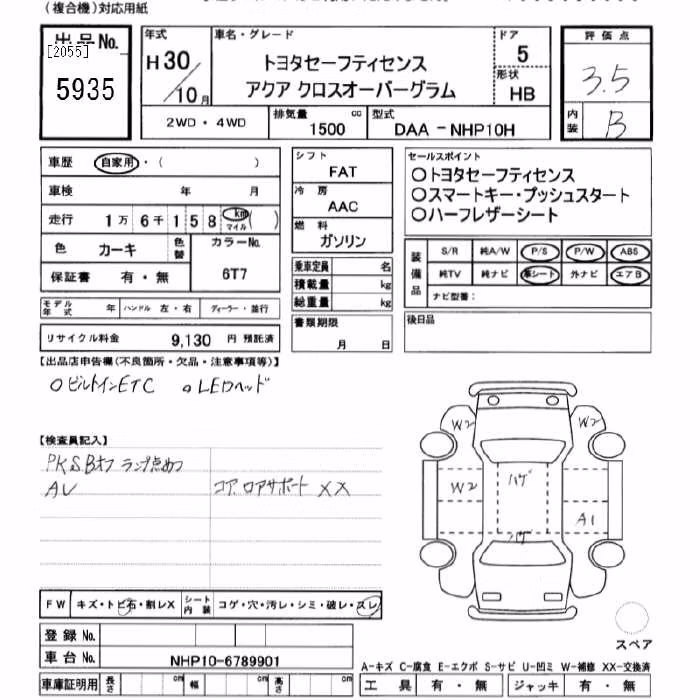 (複合機)対応用紙
出品No.
[2055]
5935
年式
H30
10月
車名・グレード
トヨタセーフティセンス
アクア クロスオーバーグラム
ドア
5
形状
HB
2WD・4WD
排気量
1500 cc
型式
DAA-NHP10H
評価点
3.5
内装
B
車歴 自家用・( )
車検 年 月
走行 1万6千158 km マイル ( )
色 カーキ 色替
カラーNo.
6T7
保証書 有・無
モデル年式 年 ハンドル 左・右 ディーラー・並行
リサイクル料金 9,130 円 預託済
シフト
FAT
冷房
AAC
燃料
ガソリン
乗車定員 名
積載量 kg
総重量 kg
書類期限
月 日
セールスポイント
○トヨタセーフティセンス
○スマートキー・プッシュスタート
○ハーフレザーシート
装備品
S/R 純A/W P/S P/W ABS
純TV 純ナビ 革シート 外ナビ エアB
ナビ型番:
後日品
【出品店申告欄(不良箇所・欠品・注意事項等)】
○ビルトインETC ○LEDヘッド
【検査員記入】
PKSBオフ ランプ点めつ
AV
コア、ロアサポート XX
W2
W2
W2
ハゲ
A1
ハゲ
FW キズ・トビ石・割レX
シート内装 コゲ・穴・汚レ・シミ・破レ・スレ
登録No.
車台No. NHP10-6789901
車庫証明用 長さ cm 幅 cm 高さ cm
スペア
A-キズ C-腐食 E-エクボ S-サビ U-凹ミ W-補修 XX-交換済
工具 有・無 ジャッキ 有・無